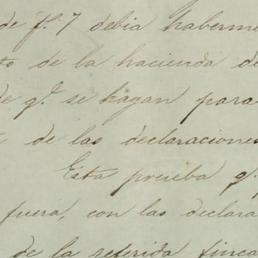 de f.s 7 debia haberme
to de la hacienda de
de q.e se hagan para
de las declaraciones
Esta prueba q.
fuera, con las declara
de la referida finca